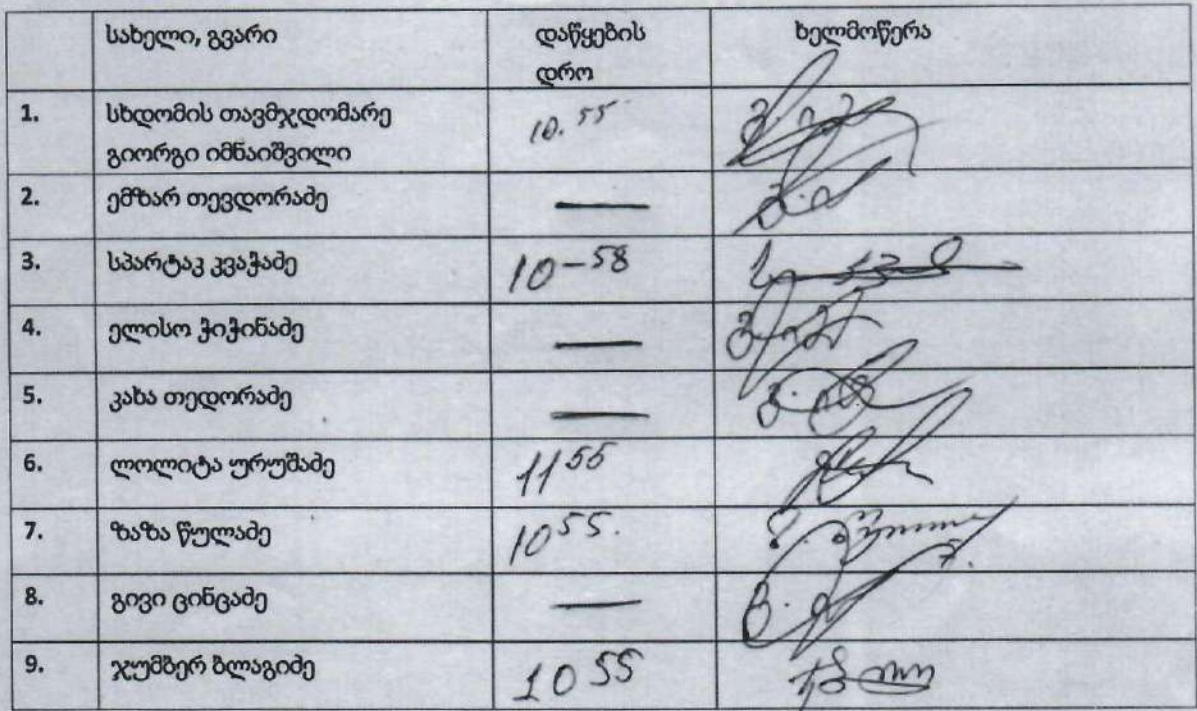 სახელი, გვარი დაწყების დრო ხელმოწერა
1. სხდომის თავმჯდომარე გიორგი იმნაიშვილი 10.55
2. ემზარ თევდორაძე —
3. სპარტაკ კვაჭაძე 10-58
4. ელისო ჭიჭინაძე —
5. კახა თედორაძე —
6. ლოლიტა ურუშაძე 11 55
7. ზაზა წულაძე 10 55.
8. გივი ცინცაძე —
9. ჯუმბერ ბლაგიძე 10 55